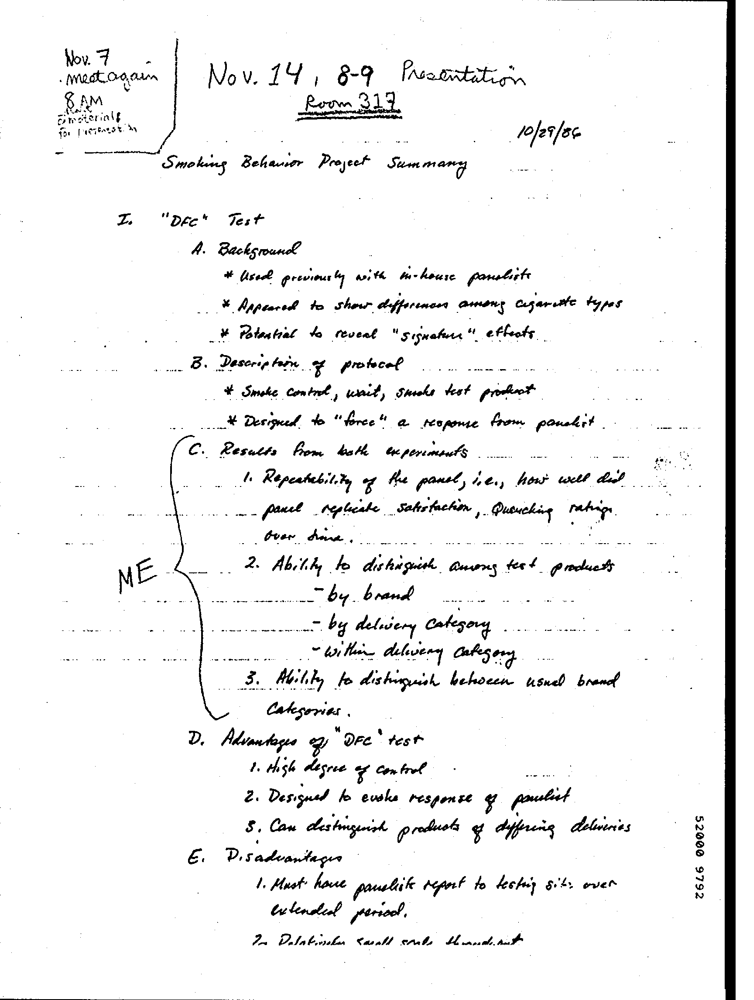 Nov. 7
. meet again
8 AM
materials
for
Nov. 14, 8-9 Presentation
Room 317
10/29/86
Smoking Behavior Project Summary
I. "DFC" Test
A. Background
* Used previously with in-house panelists
* Appeared to show differences among cigarette types
* Potential to reveal "signature" effects
B. Description of protocol
* Smoke control, wait, smoke test product
* Designed to "force" a response from panelist
C. Results from both experiments
1. Repeatability of the panel, i.e., how well did
panel replicate satisfaction, Quenching ratings
over time.
2. Ability to distinguish among test products
- by brand
- by delivery category
- within delivery category
ME
3. Ability to distinguish between usual brand
Categories.
D. Advantages of "DFC" test
1. High degree of control
2. Designed to evoke response of panelist
3. Can distinguish products of differing deliveries
E. Disadvantages
1. Must have panelists report to testing site over
extended period.
2. small scale
52000 9792